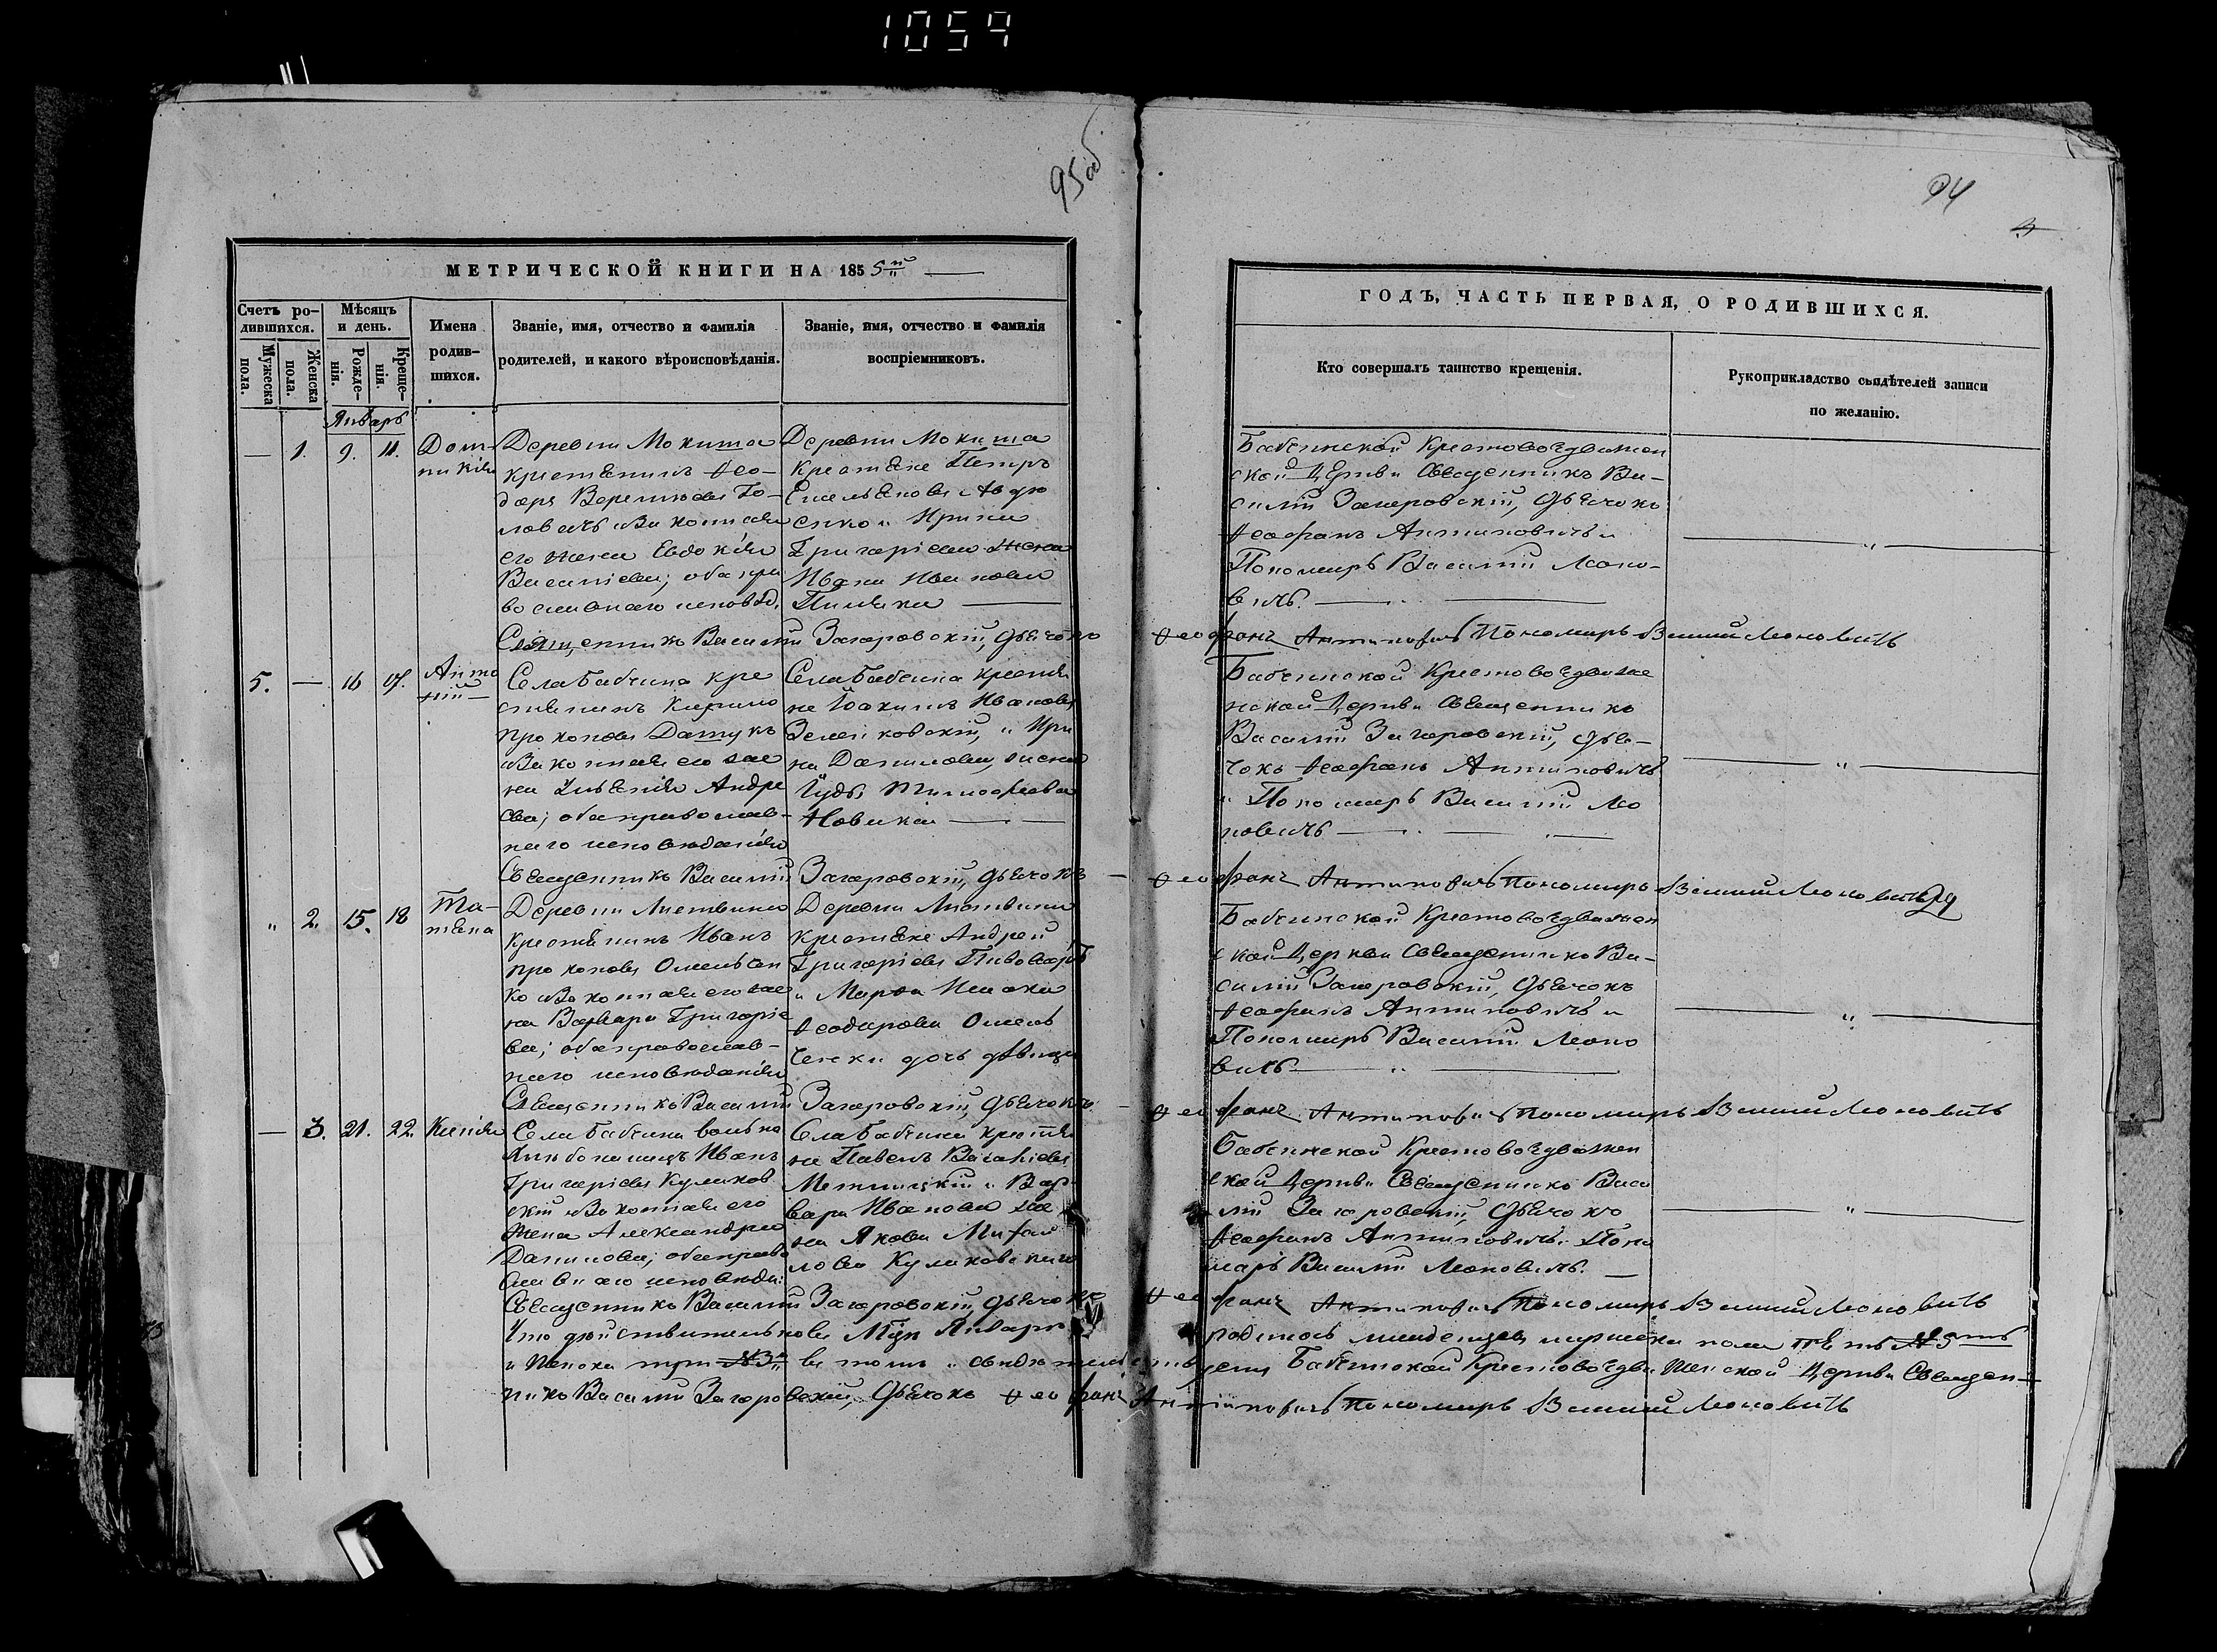 1059
95об
94
3
МЕТРИЧЕСКОЙ КНИГИ НА 1855й
Счетъ ро-
дившихся.
Мужеска
пола.
Женска
пола.
Мѣсяцъ
и день.
Рожде-
нія.
Креще-
нія.
Имена
родив-
шихся.
Званіе, имя, отчество и фамилія
родителей, и какого вѣроисповѣданія.
Званіе, имя, отчество и фамилія
воспріемниковъ.
ГОДЪ, ЧАСТЬ ПЕРВАЯ, О РОДИВШИХСЯ.
Кто совершалъ таинство крещенія.
Рукоприкладство свидѣтелей записи
по желанію.
Январь
— 1. 9. 11.
Дом-
никія
Деревни Мокища
крестянинъ Ѳео-
доръ
его жена Евдокія
Василіева; оба пра
вославнаго исповѣд.
Деревни Мокища
крестяне Петръ
Емельяновъ Авдю
енко и Ирина
Григоріева жена
Ивана Иванова
Бабчинской Крестовоздвижен
ской Церкви Священникъ Ва-
силій Загоровскій, Дьячокъ
Ѳеофанъ Антиповичъ и
Пономарь Василій Моно-
вичъ.
Священникъ Василій Загоровскій, Дьячокъ Ѳеофанъ Антиповичъ Пономарь Василій Моновичъ
5. — 16 17.
Анто
ній
Села Бабчина кре
стянинъ
Прокоповъ Дащукъ
и Законная его же
на Андре
ева; оба православ-
наго исповѣданія
Села Бабчина крестя
не Іоакимъ Ивановъ
и Ири
на Данилова, жена
Тимофеева
Новика
Бабчинской Крестовоздвиже
нской Церкви Священникъ
Василій Загоровскій, Дья-
чокъ Ѳеофанъ Антиповичъ
и Пономарь Василій Мо
новичъ
Священникъ Василій Загоровскій, Дьячокъ Ѳеофанъ Антиповичъ Пономарь Василій Моновичъ
„ 2. 15. 18
Та-
тяна
Деревни Листвина
Крестянинъ Иванъ
Прокоповъ Омельчен
ко и Законная его же
на Варвара Григоріе
ва; оба православ-
наго исповѣданія
Деревни Листвина
Крестяне Андрей
Григоріевъ Пивоваръ
и
Ѳеодорова Омель
ченки дочь дѣвица
Бабчинской Крестовоздвижен
ской Церкви Священникъ Ва-
силій Загоровскій, Дьячокъ
Ѳеофанъ Антиповичъ и
Пономарь Василій Моно
вичъ
Священникъ Василій Загоровскій, Дьячокъ Ѳеофанъ Антиповичъ Пономарь Василій Моновичъ
— 3. 21. 22.
Ксенія
Села Бабчина
Иванъ
Григоріевъ Куликов
скій и Законная его
Жена Александра
Данилова; оба право
славнаго исповѣда:
Села Бабчина крестя
не Павелъ
и Вар
вара Иванова же
на Якова Михай
лова Куликовскаго
Бабчинской Крестовоздвижен
ской Церкви Священникъ Васи
лій Загоровскій, Дьячокъ
Ѳеофанъ Антиповичъ. Поно
марь Василій Моновичъ.
Священникъ Василій Загоровскій, Дьячокъ Ѳеофанъ Антиповичъ Пономарь Василій Моновичъ
Что дѣйствительно въ Мцѣ Январѣ родилось младенцевъ мужеска пола пять №5
и Женска три №3 въ томъ и свидѣтельствуемъ Бабчинской Крестовоздвиженской Церкви Священ-
никъ Василій Загоровскій, Дьячокъ Ѳеофанъ Антиповичъ Пономарь Василій Моновичъ